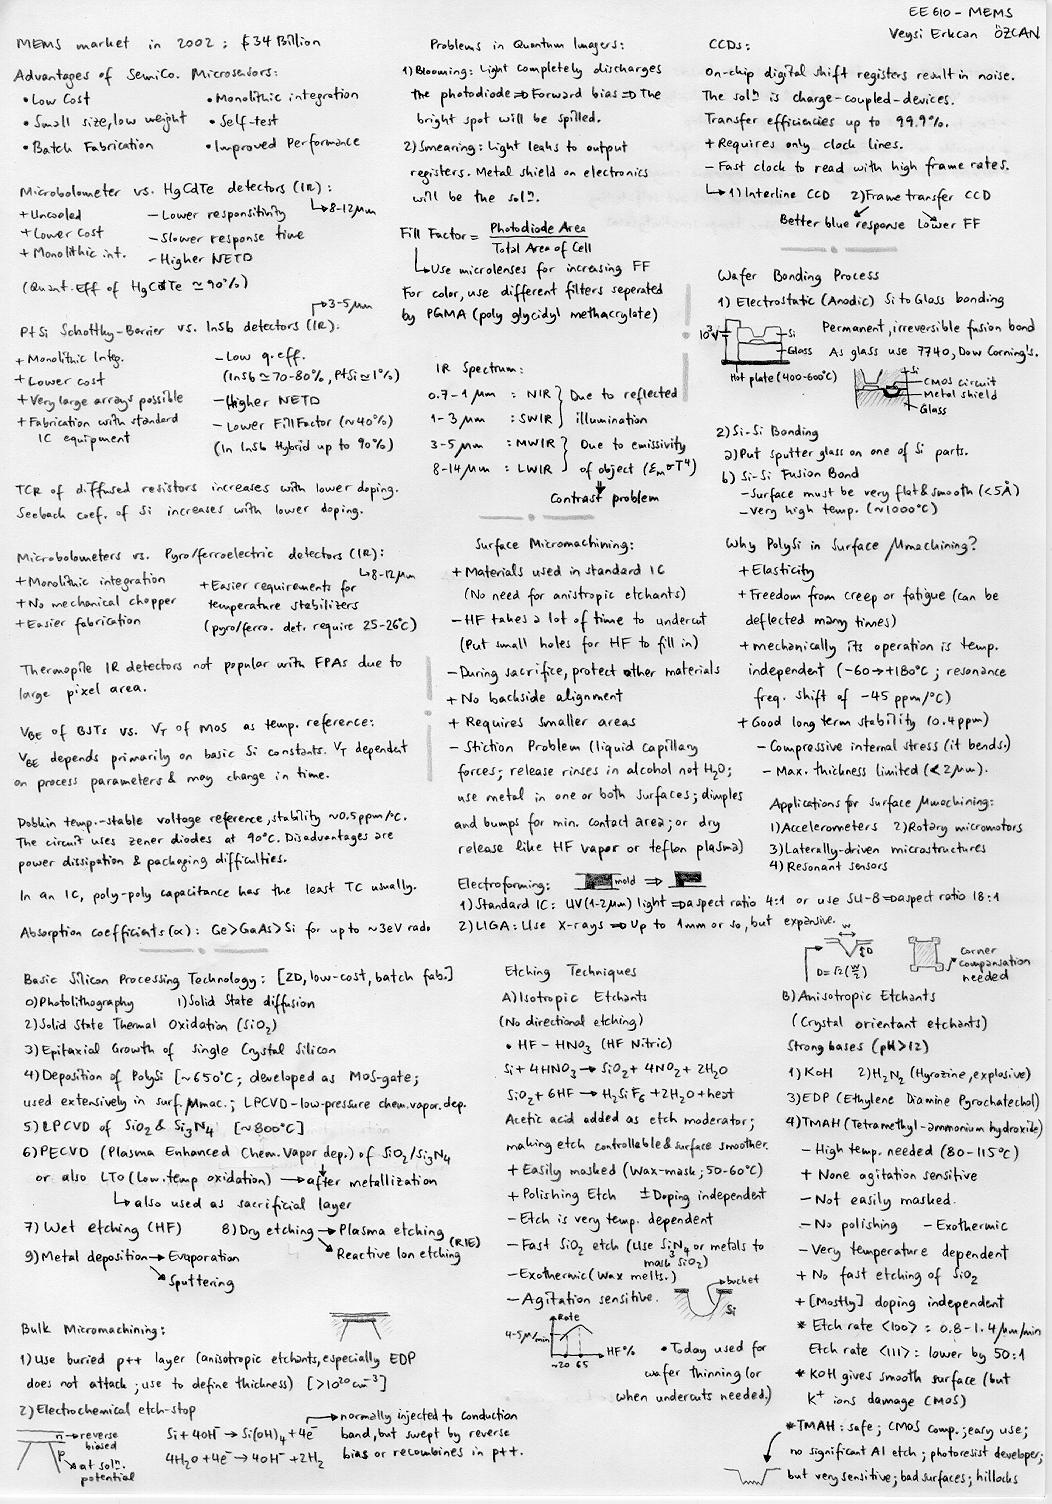 EE 610 - MEMS
Veysi Erkcan ÖZCAN
MEMS market in 2002 : $34 Billion
Advantages of SemiCo. Microsensors:
• Low Cost
• Small size, low weight
• Batch Fabrication
• Monolithic integration
• Self-test
• Improved Performance
Microbolometer vs. HgCdTe detectors (IR):
↳ 8-12 μm
+ Uncooled
+ Lower Cost
+ Monolithic int.
- Lower responsitivity
- Slower response time
- Higher NETD
(Quant. Eff of HgCdTe ≃ 90%)
3-5 μm
PtSi Schottky-Barrier vs. InSb detectors (IR):
+ Monolithic Integ.
+ Lower cost
+ Very large arrays possible
+ Fabrication with standard
IC equipment
- Low q. eff.
(InSb ≃ 70-80%, PtSi ≃ 1%)
- Higher NETD
- Lower Fill Factor (~40%)
(In InSb Hybrid up to 90%)
TCR of diffused resistors increases with lower doping.
Seeback coef. of Si increases with lower doping.
Microbolometers vs. Pyro/ferroelectric detectors (IR):
↳ 8-12 μm
+ Monolithic integration
+ No mechanical chopper
+ Easier fabrication
+ Easier requirements for
temperature stabilizers
(pyro/ferro. det. require 25-26°C)
Thermopile IR detectors not popular with FPAs due to
large pixel area.
VBE of BJTs vs. VT of MOS as temp. reference:
VBE depends primarily on basic Si constants. VT dependent
on process parameters & may change in time.
Dobkin temp.-stable voltage reference, stability ~0.5 ppm/°C.
The circuit uses zener diodes at 90°C. Disadvantages are
power dissipation & packaging difficulties.
In an IC, poly-poly capacitance has the least TC usually.
Absorption coefficients (α): Ge > GaAs > Si for up to ~3eV rad.
Problems in Quantum Imagers:
1) Blooming: Light completely discharges
the photodiode ⇒ Forward bias ⇒ The
bright spot will be spilled.
2) Smearing: Light leaks to output
registers. Metal shield on electronics
will be the solⁿ.
Fill Factor = Photodiode Area
Total Area of Cell
↳ Use microlenses for increasing FF
For color, use different filters seperated
by PGMA (poly glycidyl methacrylate)
IR Spectrum:
0.7-1 μm : NIR } Due to reflected
1-3 μm : SWIR } illumination
3-5 μm : MWIR } Due to emissivity
8-14 μm : LWIR } of object (εmσT⁴)
Contrast problem
Surface Micromachining:
+ Materials used in standard IC
(No need for anistropic etchants)
- HF takes a lot of time to undercut
(Put small holes for HF to fill in)
- During sacrifice, protect other materials
+ No backside alignment
+ Requires smaller areas
- Stiction Problem (liquid capillary
forces; release rinses in alcohol not H₂O;
use metal in one or both surfaces; dimples
and bumps for min. contact area; or dry
release like HF vapor or teflon plasma)
CCDs:
On-chip digital shift registers result in noise.
The solⁿ is charge-coupled-devices.
Transfer efficiencies up to 99.9%.
+ Requires only clock lines.
- Fast clock to read with high frame rates.
↳ 1) Interline CCD 2) Frame transfer CCD
Better blue response Lower FF
Wafer Bonding Process
1) Electrostatic (Anodic) Si to Glass bonding
10³V
Si
Glass
Hot plate (400-600°C)
Permanent, irreversible fusion bond
As glass use 7740, Dow Corning's.
Si
CMOS circuit
Metal shield
Glass
2) Si-Si Bonding
a) Put sputter glass on one of Si parts.
b) Si-Si Fusion Bond
- Surface must be very flat & smooth (<5Å)
- very high temp. (~1000°C)
Why PolySi in Surface μmachining?
+ Elasticity
+ Freedom from creep or fatigue (can be
deflected many times)
+ mechanically its operation is temp.
independent (-60 → +180°C ; resonance
freq. shift of -45 ppm/°C)
+ Good long term stability (0.4 ppm)
- Compressive internal stress (it bends.)
- Max. thickness limited (<2μm).
Applications for Surface μmachining:
1) Accelerometers 2) Rotary micromotors
3) Laterally-driven microstructures
4) Resonant sensors
Electroforming: mold ⇒
1) Standard IC: UV (1-2μm) light ⇒ aspect ratio 4:1 or use SU-8 ⇒ aspect ratio 18:1
2) LIGA: Use X-rays ⇒ Up to 1mm or so, but expansive.
Basic Silicon Processing Technology: [2D, low-cost, batch fab.]
0) Photolithography 1) Solid State diffusion
2) Solid State Thermal Oxidation (SiO₂)
3) Epitaxial Growth of Single Crystal Silicon
4) Deposition of PolySi [~650°C; developed as MOS-gate;
used extensively in surf. μmac.; LPCVD-low-pressure chem. vapor. dep.
5) LPCVD of SiO₂ & Si₃N₄ [~800°C]
6) PECVD (Plasma Enhanced Chem. Vapor dep.) of SiO₂/Si₃N₄
or also LTO (Low. temp oxidation) → after metallization
↳ also used as sacrificial layer
7) Wet etching (HF) 8) Dry etching → Plasma etching
Reactive Ion etching (RIE)
9) Metal deposition → Evaporation
Sputtering
Bulk Micromachining:
1) Use buried p++ layer (anisotropic etchants, especially EDP
does not attack; use to define thickness) [>10²⁰ cm⁻³]
2) Electrochemical etch-stop
n → reverse biased
p → at solⁿ. potential
Si + 4OH⁻ → Si(OH)₄ + 4e⁻
4H₂O + 4e⁻ → 4OH⁻ + 2H₂
normally injected to conduction
band, but swept by reverse
bias or recombines in p++.
Etching Techniques
A) Isotropic Etchants
(No directional etching)
• HF - HNO₃ (HF Nitric)
Si + 4HNO₃ → SiO₂ + 4NO₂ + 2H₂O
SiO₂ + 6HF → H₂SiF₆ + 2H₂O + heat
Acetic acid added as etch moderator;
making etch controllable & surface smoother.
+ Easily masked (Wax-mask; 50-60°C)
+ Polishing Etch ± Doping independent
- Etch is very temp. dependent
- Fast SiO₂ etch (Use Si₃N₄ or metals to
mask SiO₂)
- Exothermic (Wax melts.)
- Agitation sensitive.
bucket
Si
Rate
4-5 μ/min
~20 65
HF%
• Today used for
wafer thinning (or
when undercuts needed.)
W
D
D = √2 (W/2)
corner
compansation
needed
B) Anisotropic Etchants
(Crystal orientant etchants)
Strong bases (pH > 12)
1) KOH 2) H₂N₂ (Hyrozine, explosive)
3) EDP (Ethylene Diamine Pyrochatechol)
4) TMAH (Tetramethyl-ammonium hydroxide)
- High temp. needed (80-115°C)
+ None agitation sensitive
- Not easily masked.
- No polishing - Exothermic
- Very temperature dependent
+ No fast etching of SiO₂
+ [Mostly] doping independent
* Etch rate <100> : 0.8-1.4 μm/min
Etch rate <111> : lower by 50:1
* KOH gives smooth surface (but
K⁺ ions damage CMOS)
* TMAH : safe; CMOS comp.; easy use;
no significant Al etch; photoresist developer;
but very sensitive; bad surfaces; hillocks